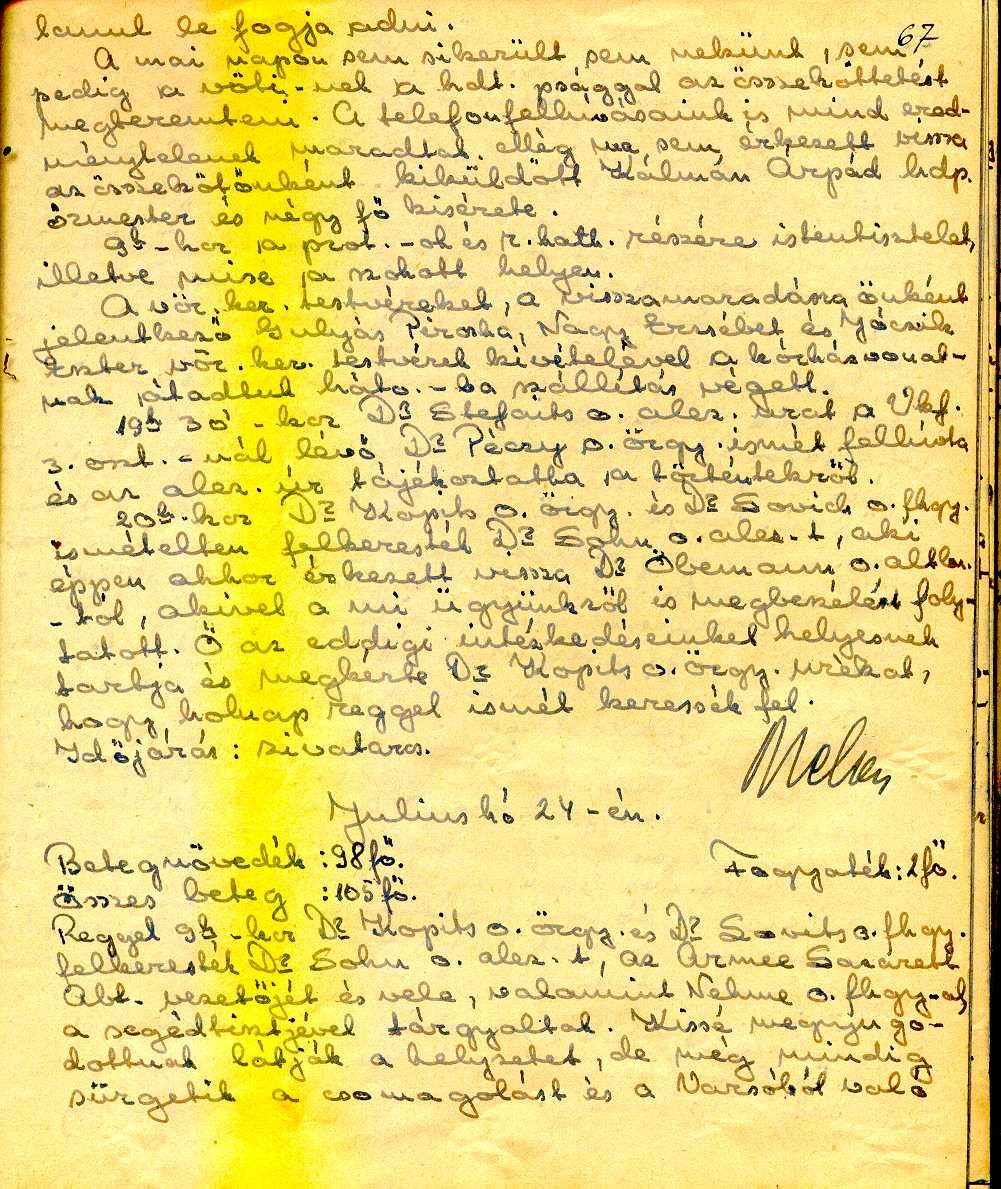 tanul le fogja adni.
67
A mai napon sem sikerült sem nekünk, sem
pedig a vöti-nek a hdt. psággal az összeköttetést
megteremteni. A telefonfelhivásaink is mind ered-
ménytelenek maradtak. Még ma sem érkezett vissza
az összekötőnként kiküldött Kálmán Árpád hdp.
őrmester és négy fő kisérete.
9h-kor a prot.-ok és r. kath. részére istentisztelet,
illetve mise a szokott helyen.
A vör. ker. testvéreket, a visszamaradásra önként
jelentkező Gulyás Piroska, Nagy Erzsébet és Jócsik
Eszter vör. ker. testvérek kivételével a kórházvonat-
nak átadtuk háto.-ba szállítás végett.
19h 30'-kor Dr Stefaits o. alez. urat a Vkf.
3. oszt.-nál lévő Dr Péczy o. őrgy. ismét felhivta
és az alez. úr tájékoztatta a történtekről.
20h-kor Dr Kopits o. őrgy. és Dr Sovich o. fhgy.
ismételten felkeresték Dr Sohn o. alez-t, aki
éppen akkor érkezett vissza Dr Öbemann o.
-tól, akivel a mi ügyünkről is megbeszélést foly-
tatott. Ő az eddigi intézkedéseinket helyesnek
tartja és megkérte Dr Kopits o. őrgy. urékat,
hogy holnap reggel ismét keressék fel.
Időjárás: zivataros.
Julius hó 24-én.
Betegnövedék : 98 fő.
Fogyaték: 2 fő.
összes beteg : 105 fő.
Reggel 9h-kor Dr Kopits o. őrgy. és Dr Sovits o. fhgy.
felkeresték Dr Sohn o. alez-t, az Armee Lazarett
Abt. vezetőjét és vele, valamint Nehme o. fhgy-al,
a segédtisztjével tárgyaltak. Kissé megnyugo-
dottnak látják a helyzetet, de még mindig
sürgetik a csomagolást és a Varsóból való